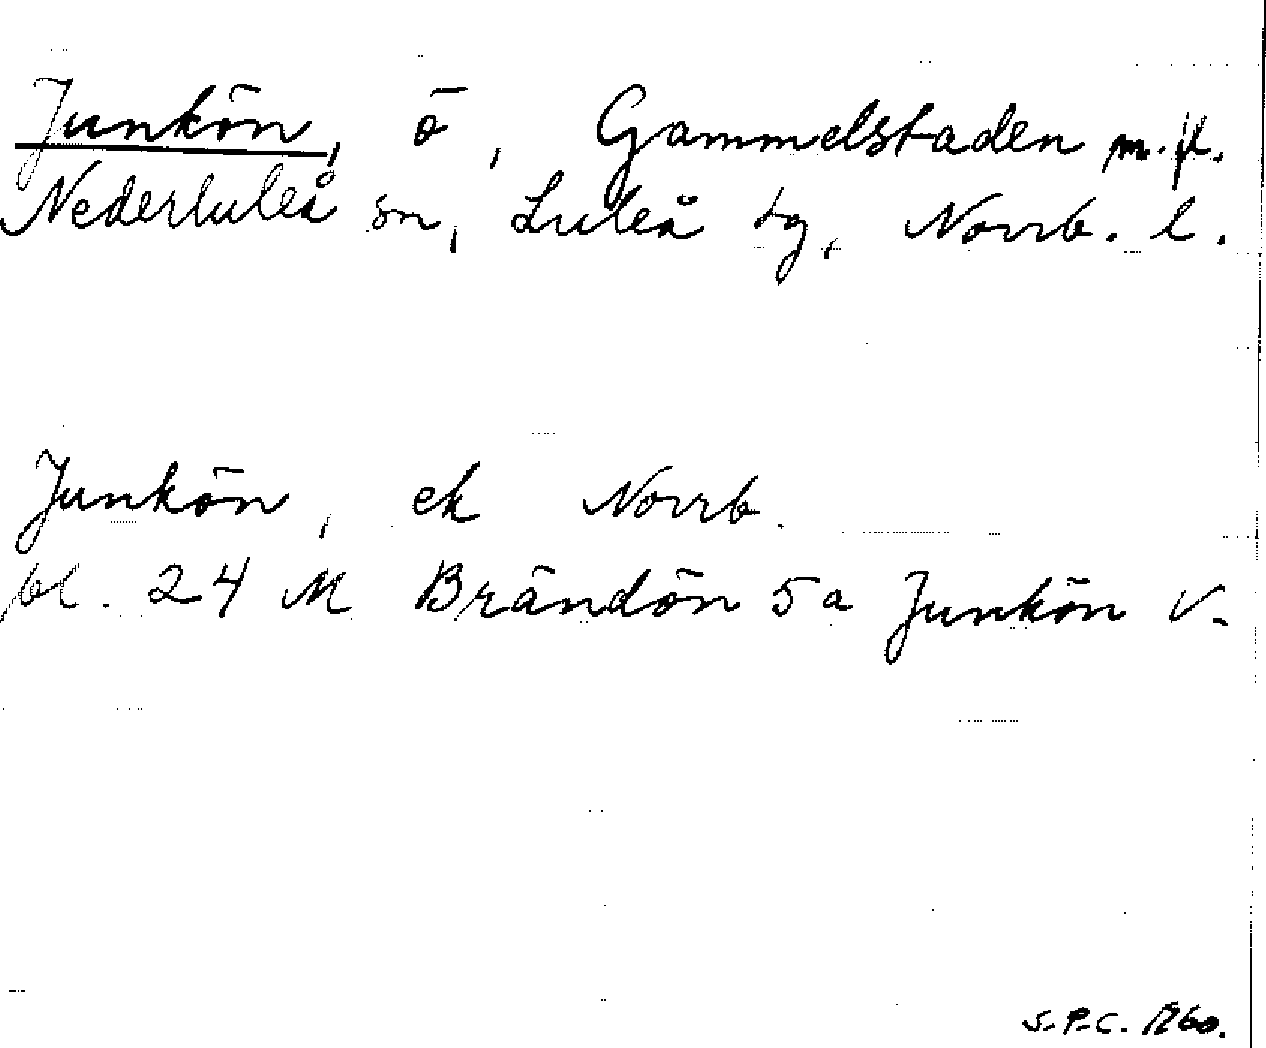 Junkön, ö, Gammelstaden m.fl.
Nederluleå sn, Luleå tg, Norrb. l.
Junkön, ek Norrb.
bl. 24 M Brändön 5a Junkön V.
S.P.C. 1960.